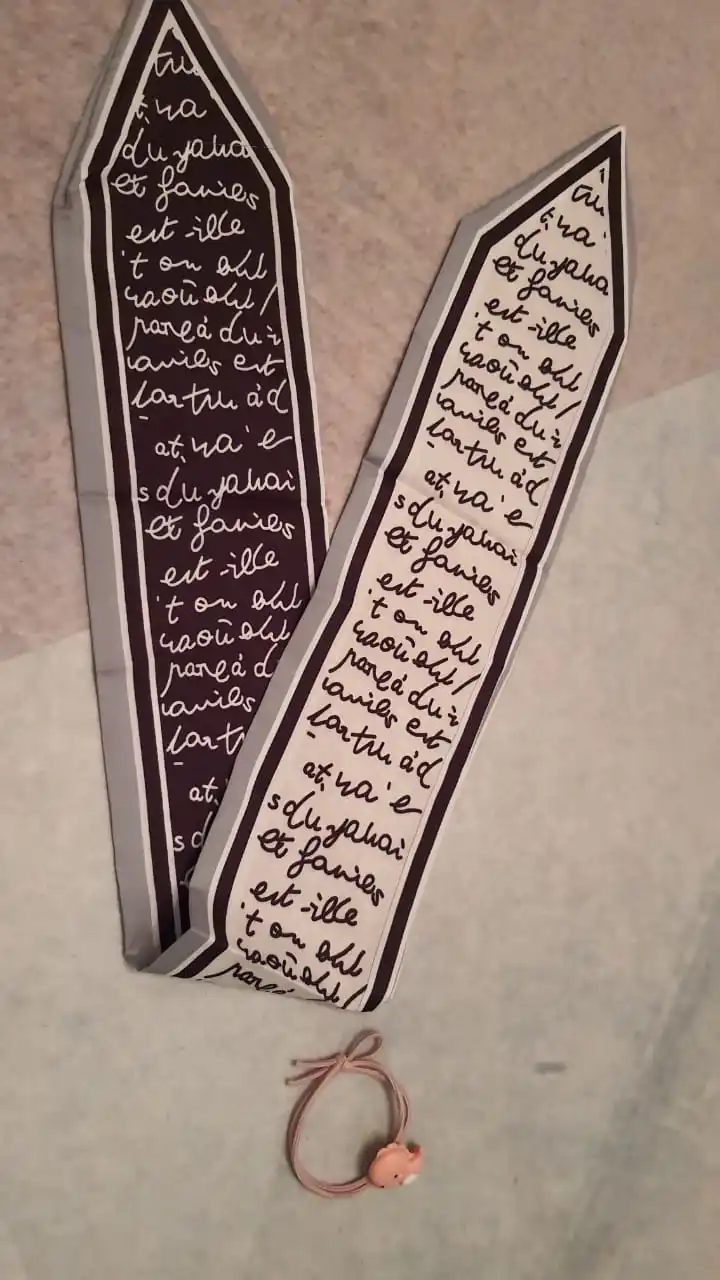 tru
t, ya
du yaha
et fanies
est -ille
't on ohl
yaoū ohl/
parçá du i
ianiles est
lartru ád
at, ya' e
s du yahai
et fanies
est -ille
't on ohl
yaoū ohl
parçá d
ianiles
lartr
at,
s d
tru
t, ya'
du yaha
et fanies
est -ille
't on ohl
yaoū ohl/
parçá du i
ianiles est
lartru ád
at, ya' e
s du yahai
et fanies
est -ille
't on ohl
yaoū ohl/
parçá du i
ianiles est
lartru ád
at, ya' e
s du yahai
et fanies
est -ille
't on ohl
yaoū ohl/